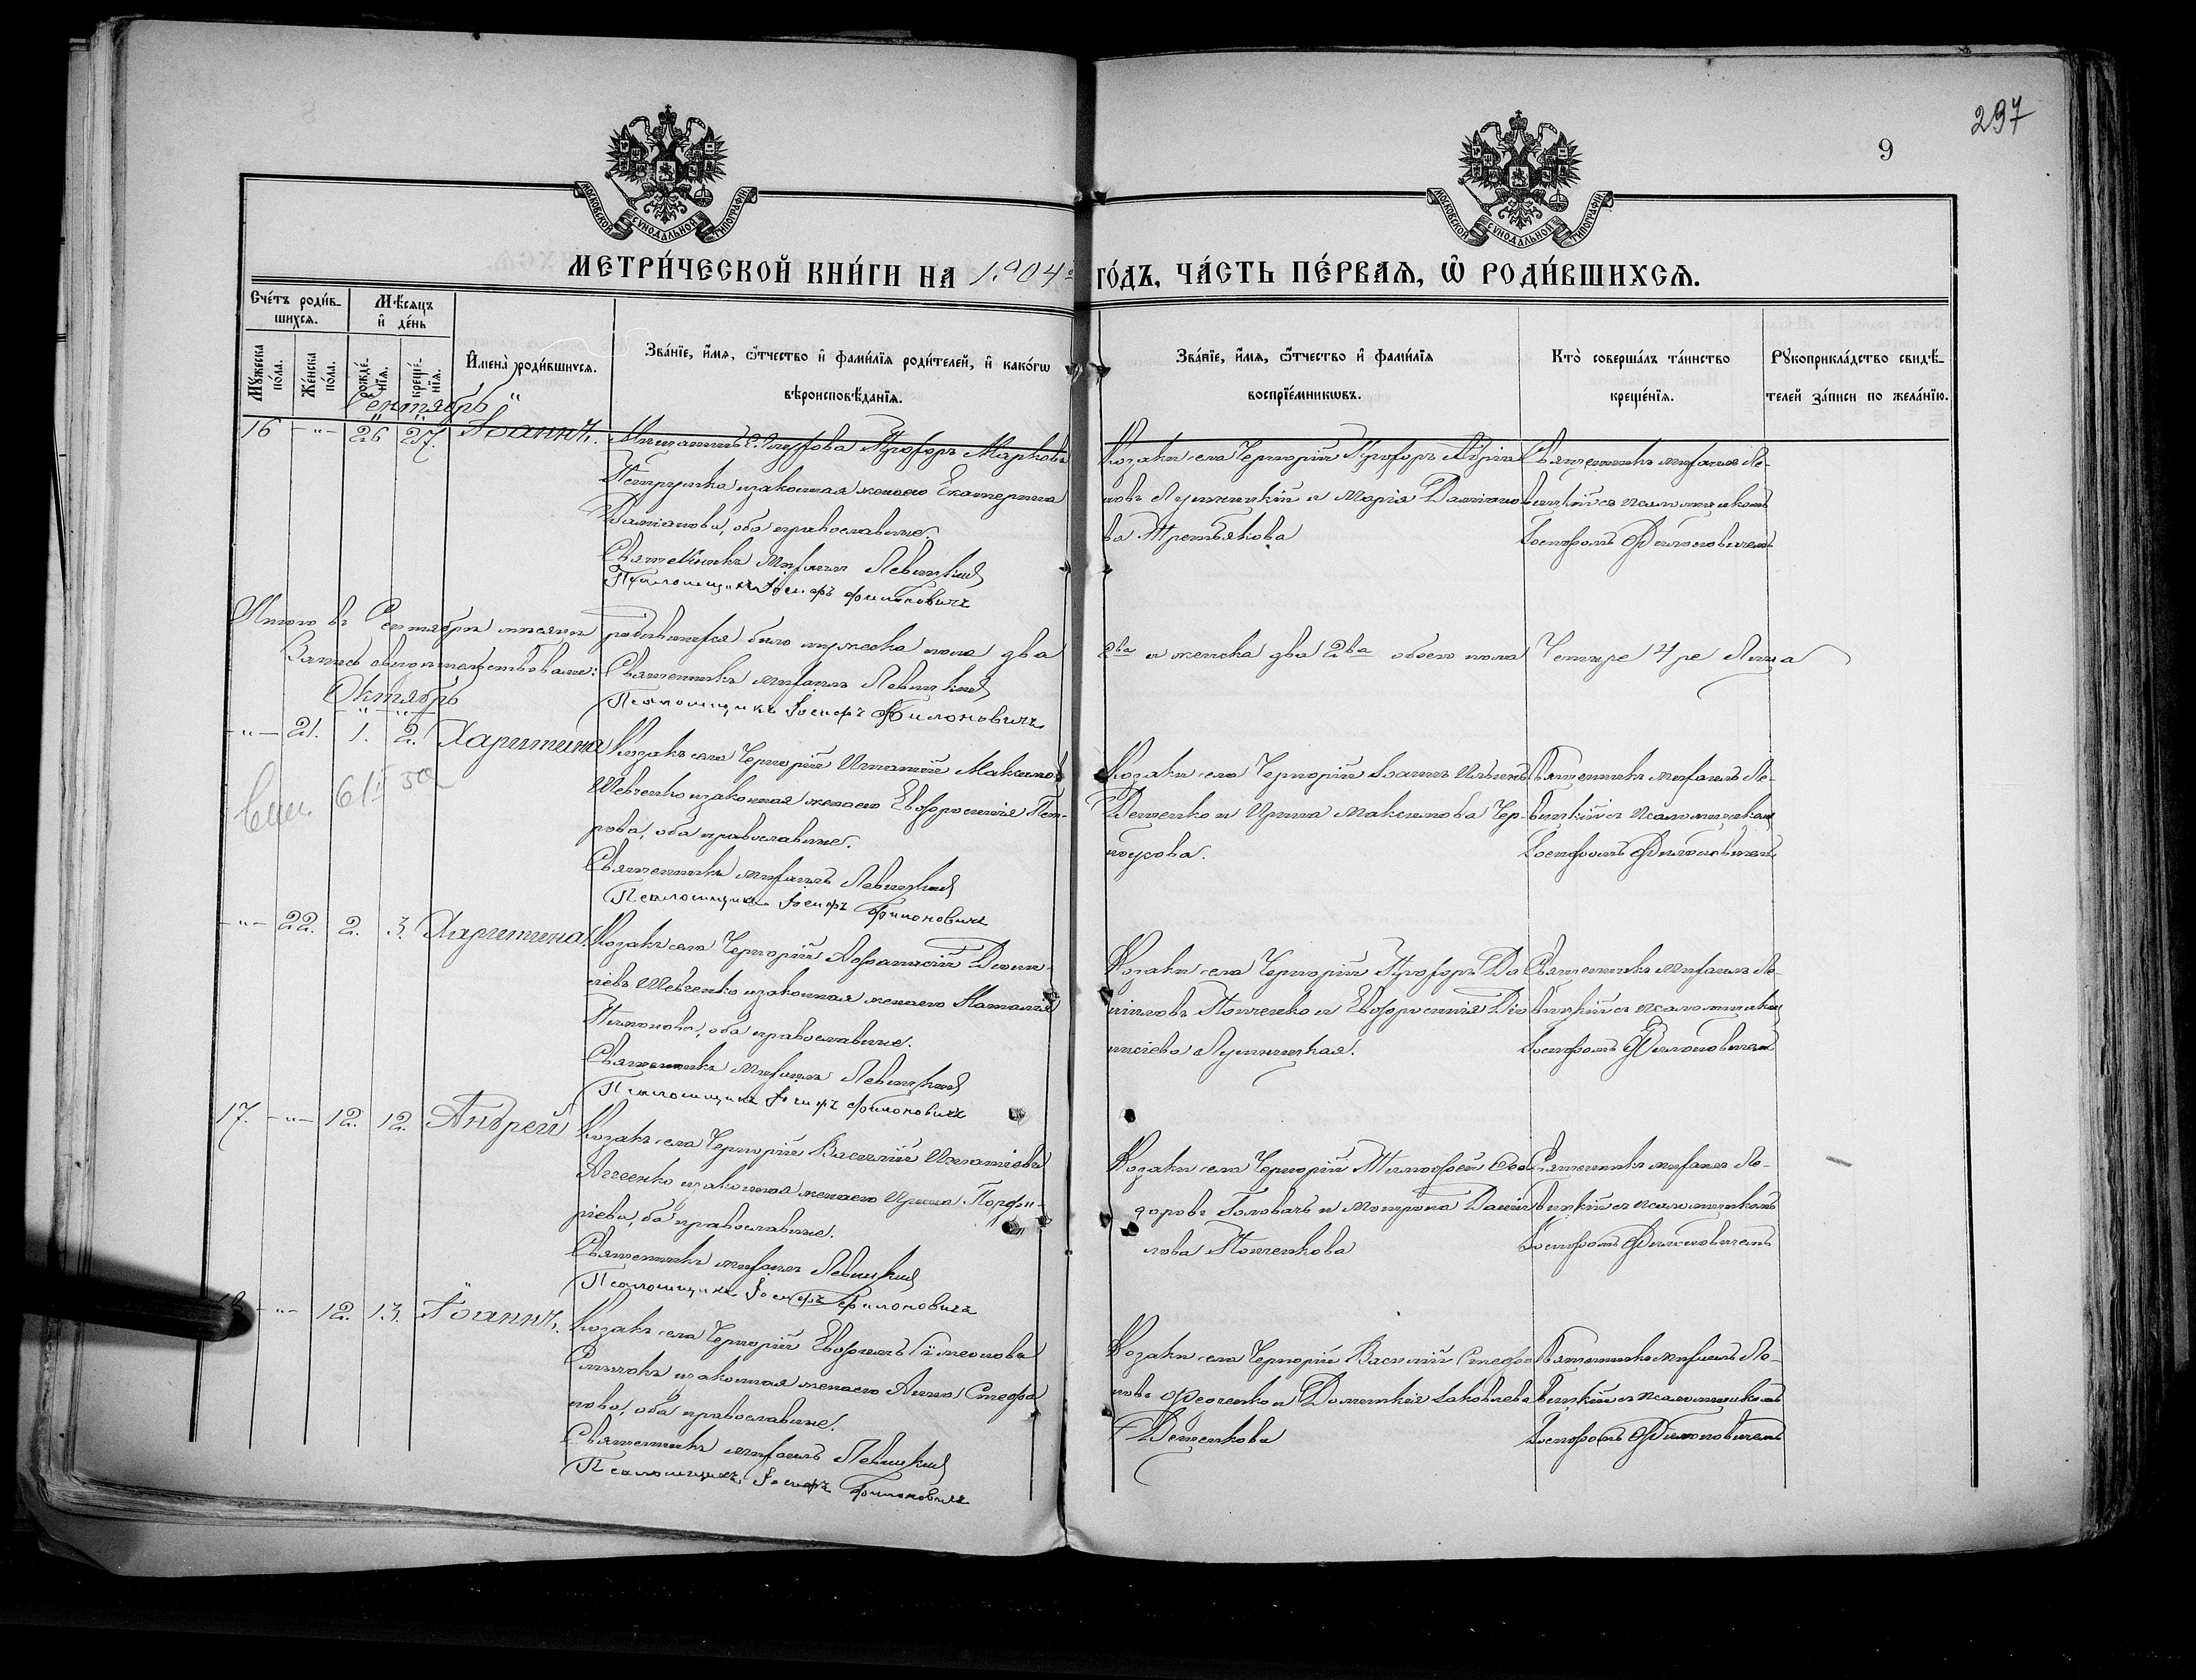 297
9
МОСКОВСКОЙ СѴНОДАЛЬНОЙ ТИПОГРАФІИ
МОСКОВСКОЙ СѴНОДАЛЬНОЙ ТИПОГРАФІИ
МЕТРИ́ЧЕСКОЙ КНИ́ГИ НА 1904 ГО́ДЪ, ЧА́СТЬ ПЕ́РВАѦ, Ѽ РОДИ́ВШИХСѦ.
Сче́тъ роди́в-
шихсѧ.
Мѣ́сѧцъ
и҆ де́нь
Мꙋ́жеска
по́ла.
Же́нска
по́ла.
рожде́-
нїѧ.
креще́-
нїѧ.
И҆мена̀ роди́вшихсѧ.
Зва́нїе, и҆́мѧ, ѻ҆́тчество и҆ фами́лїѧ роди́телей, и҆ како́гѡ
вѣроисповѣ́данїѧ.
Зва́нїе, и҆́мѧ, ѻ҆́тчество и҆ фами́лїѧ
воспрїе́мникѡвъ.
Кто̀ соверша́лъ та́инство
креще́нїѧ.
Рꙋкоприкла́дство свидѣ́-
телей за́писи по жела́нїю.
Сентябрь
16 -"- 26 27. Іоаннъ.
Мещанинъ г. Прохоръ Марковъ
Петрушка и законная жена его Екатерина
Даміанова, оба православные.
Священникъ Михаилъ Левицкій
Псаломщикъ Іосифъ Филоновичъ
Козаки села Чернорій Прохоръ
Лушницкій и Марія Даміано-
ва Третьякова
Священникъ Михаилъ Ле-
вицкій съ псаломщикомъ
Іосифомъ Филоновичемъ
Итого въ Сентябрѣ мѣсяцѣ родившихся было мужеска пола два
2ва и женска два 2ва обоего пола Четыре 4ре Лица
Запись свидѣтельствовали: Священникъ Михаилъ Левицкій
Псаломщикъ Іосифъ Филоновичъ
Октябрь
-"- 21. 1. 2. Харитина
Козакъ села Чернорій Игнатій Максимовъ
Шевченко и законная жена его Евфросинія Пет-
рова, оба православные.
Священникъ Михаилъ Левицкій
Псаломщикъ Іосифъ Филоновичъ
Козаки села Чернорій Іоаннъ
Деменко и Ирина Максимова Чер-
ноусова.
Священникъ Михаилъ Ле-
вицкій съ псаломщикомъ
Іосифомъ Филоновичемъ
-"- 22. 2. 3. Харитина.
Козакъ села Чернорій Аѳанасій Діони-
сіевъ Шевченко и законная жена его Наталія
оба православные.
Священникъ Михаилъ Левицкій
Псаломщикъ Іосифъ Филоновичъ
Козаки села Чернорій Прохоръ Да-
ніиловъ и Евфросинія Діо-
нисіева Лушницкая.
Священникъ Михаилъ Ле-
вицкій съ псаломщикомъ
Іосифомъ Филоновичемъ
17. -"- 12. 12. Андрей
Козакъ села Чернорій Василій Игнатіевъ
и законная жена его Ирина Порфи-
ріева, оба православные.
Священникъ Михаилъ Левицкій
Псаломщикъ Іосифъ Филоновичъ
Козаки села Чернорій Тимофей Ѳео-
доровъ Головачъ и Матрона Даніи-
лова
Священникъ Михаилъ Ле-
вицкій съ псаломщикомъ
Іосифомъ Филоновичемъ
-"- 12. 13. Іоаннъ.
Козакъ села Чернорій Евфимъ Симеоновъ
и законная жена его Анна Стефа-
нова, оба православные.
Священникъ Михаилъ Левицкій
Псаломщикъ Іосифъ Филоновичъ
Козаки села Чернорій Василій Стефа-
новъ Федченко и Домникія Іаковлева
Деменкова
Священникъ Михаилъ Ле-
вицкій съ псаломщикомъ
Іосифомъ Филоновичемъ